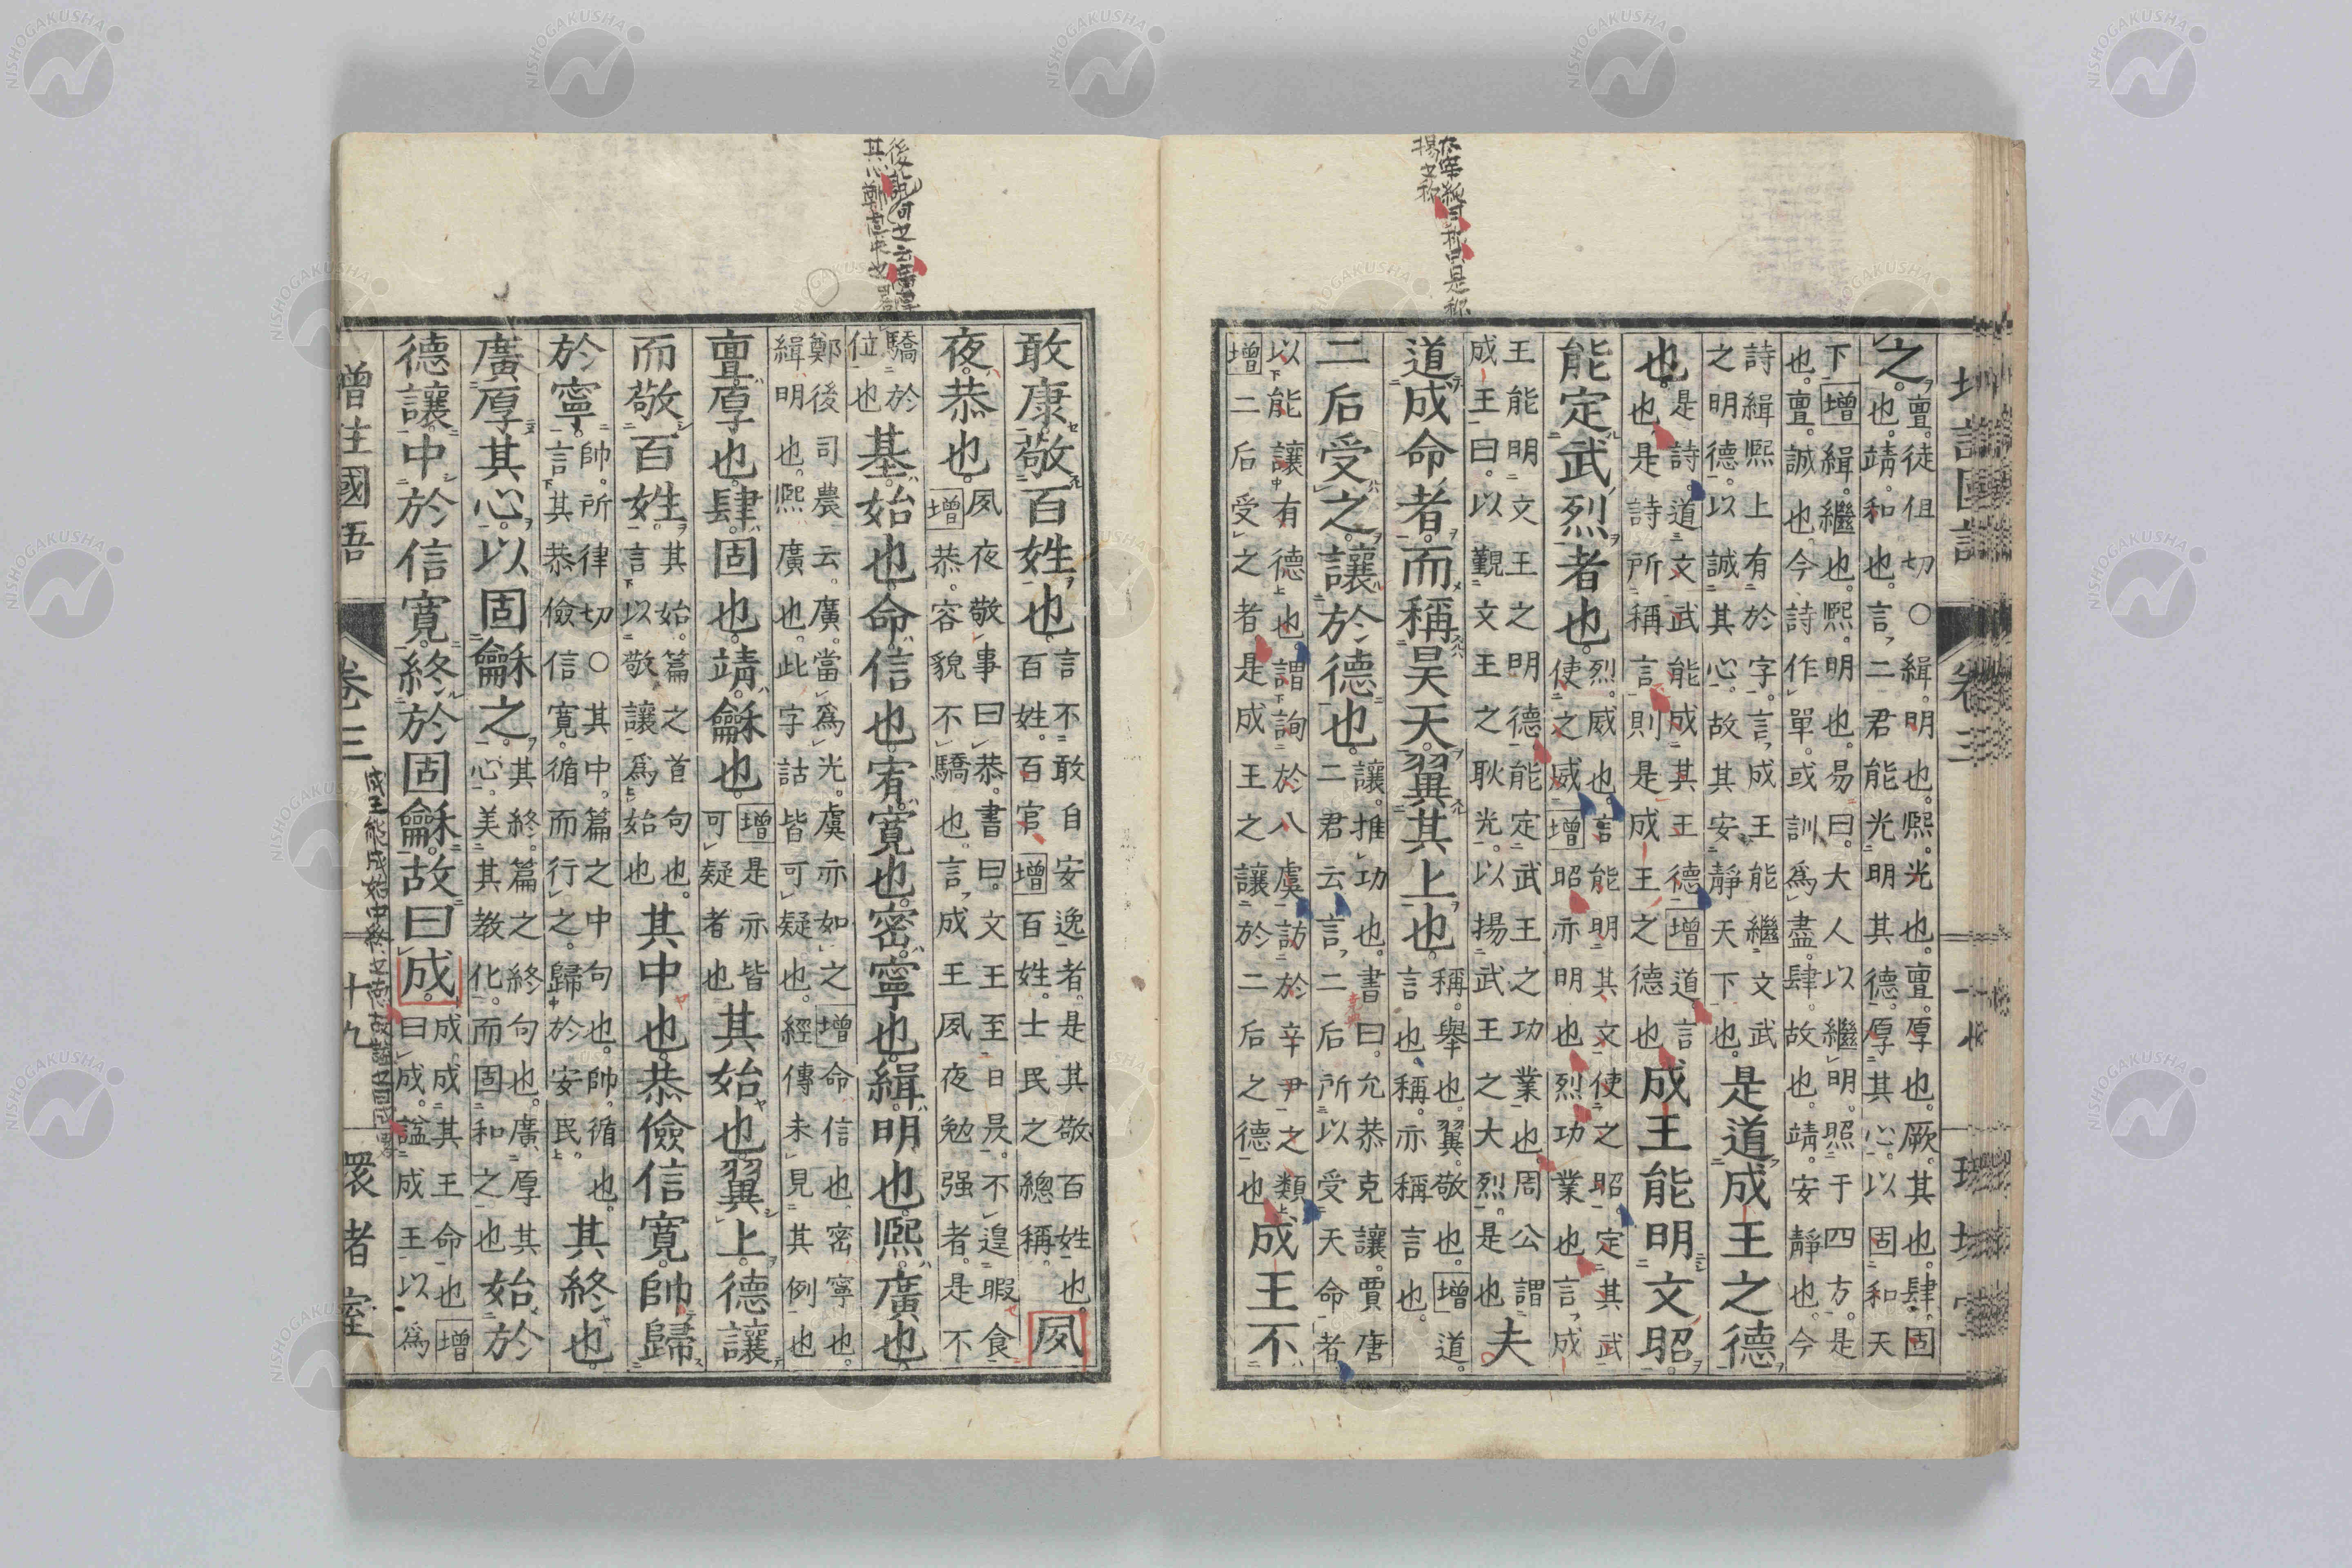 太宰純曰
揚之称
之。亶。徒但切○緝。明也。熙。光也。亶。厚也。厥。其也。肆。固
也。靖。和也。言。二君能光明其德。厚其心。以固和天
下增緝。繼也。熙。明也。易曰。大人以繼明。照于四方。是
也。亶。誠也。今詩作單。或訓爲盡。肆。故也。靖。安靜也。今
詩緝熙上有於字。言。成王能繼文武
之明德。以誠其心。故其安靜天下也。是道成王之德
也。是詩。道文武能成其王德增道。言
也。是詩所稱言。則是成王之德也成王能明文昭。
能定武烈者也。烈。威也。言能明其文。使之昭。定其武
使之威增昭亦明也。烈。功業也。言。成
王能明文王之明德。能定武王之功業也。周公謂
成王曰。以覲文王之耿光。以揚武王之大烈。是也夫
道成命者。而稱昊天。翼其上也。稱。舉也。翼。敬也。增道。
言也。稱。亦稱言也。
二后受之。讓於德也。讓。推功也。書曰。允恭克讓。賈唐
二君云。言。二后所以受天命者
以能讓有德也。謂詢於八虞。訪於辛尹之類。
增二后受之者。是成王之讓於二后之德也成王不
敢康。敬百姓也。言不敢自安逸者。是其敬百姓也。
百姓。百官。增百姓。士民之總稱。夙
夜。恭也。夙夜敬事曰恭。書曰。文王至日昃。不遑暇食
增恭。容貌不驕也。言。成王夙夜勉强者。是不
驕於
位也基。始也。命。信也。宥。寬也。密。寧也。緝。明也。熙。廣也。
鄭後司農云。廣。當爲光。虞亦如之增命信也。密寧也。
緝明也。熙廣也。此字詁皆可疑也。經傳未見其例也
亶。厚也。肆。固也。靖。龢也。增是亦皆
可疑者也其始也。翼上。德讓
而敬百姓。其始。篇之首句也。
言以敬讓爲始也其中也。恭儉信寬。帥歸
於寧。帥。所律切○其中。篇之中句也。帥。循也。
言其恭儉信寬。循而行之。歸於安民。其終也。
廣厚其心。以固龢之。其終。篇之終句也。廣厚其
心。美其教化。而固和之也始於
德讓。中於信寬。終於固龢。故曰成。成。成其王命也增
曰成。謚成王以爲
增註國語 卷三 十九
成王能成始中終之志故謚
NISHOGAKUSHA